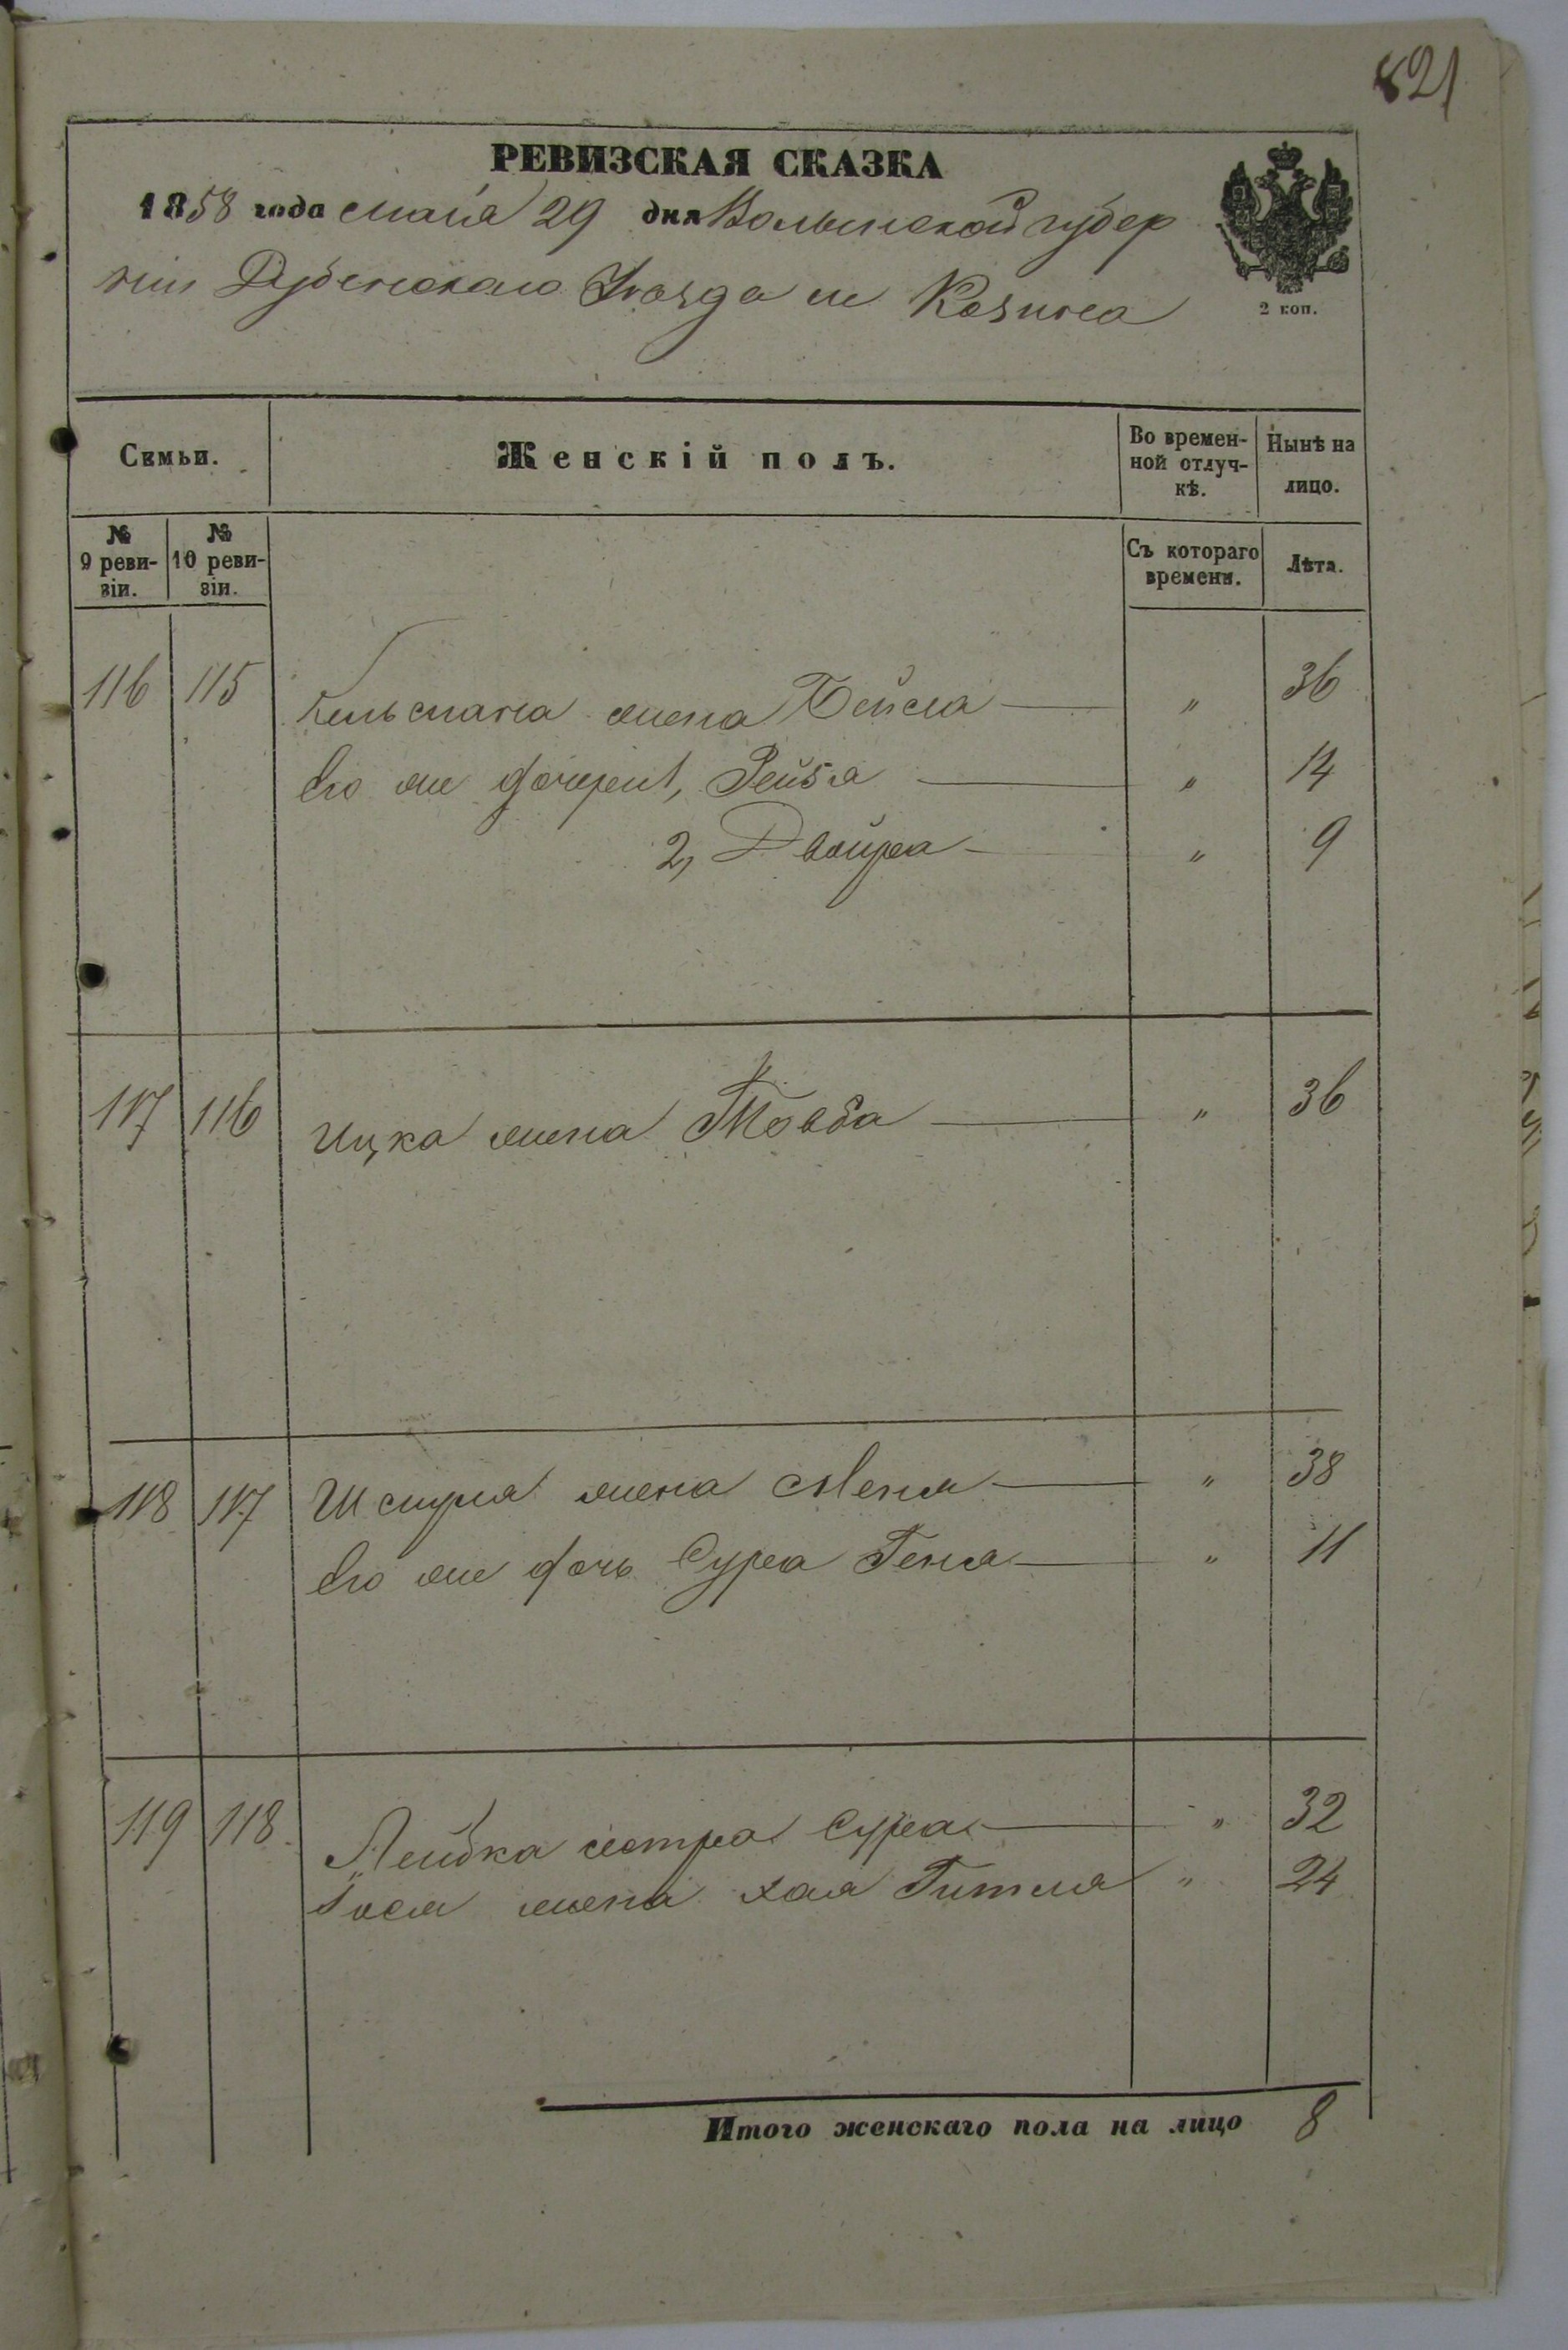 821
РЕВИЗСКАЯ СКАЗКА
1858 года мая 29 дня Волынской губер
нии Дубенского Уезда м Козина
2 коп.
Симьи.
Женскій полъ.
Во времен-
ной отлуч-
кѣ.
Нынѣ на
лицо.
№
9 реви-
зіи.
№
10 реви-
зіи.
Съ котораго
времени.
Лѣта.
116 115 жена Бейла " 36
Его же дочери 1, Рейзя " 14
2, Двойра " 9
117 116 Ицка жена Товба " 36
118 117 Шмуля жена Меня " 38
Его же дочь Сура Геня " 11
119 118 Лейбка сестра Сура " 32
жена Хая Гитля " 24
Итого женскаго пола на лицо 8